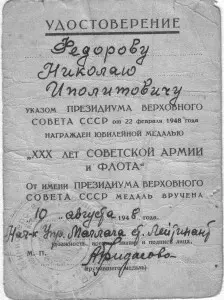 УДОСТОВЕРЕНИЕ
Федорову
Николаю
Иполитовичу
УКАЗОМ ПРЕЗИДИУМА ВЕРХОВНОГО
СОВЕТА СССР ОТ 22 февраля 1948 года
НАГРАЖДЕН ЮБИЛЕЙНОЙ МЕДАЛЬЮ
„XXX ЛЕТ СОВЕТСКОЙ АРМИИ
И ФЛОТА"
ОТ ИМЕНИ ПРЕЗИДИУМА ВЕРХОВНОГО
СОВЕТА СССР МЕДАЛЬ ВРУЧЕНА
10 августа 1948 года.
Нач-к Упр. ст. Лейтинант
должность, звание и подпись лица,
М. П.
вручившего медаль